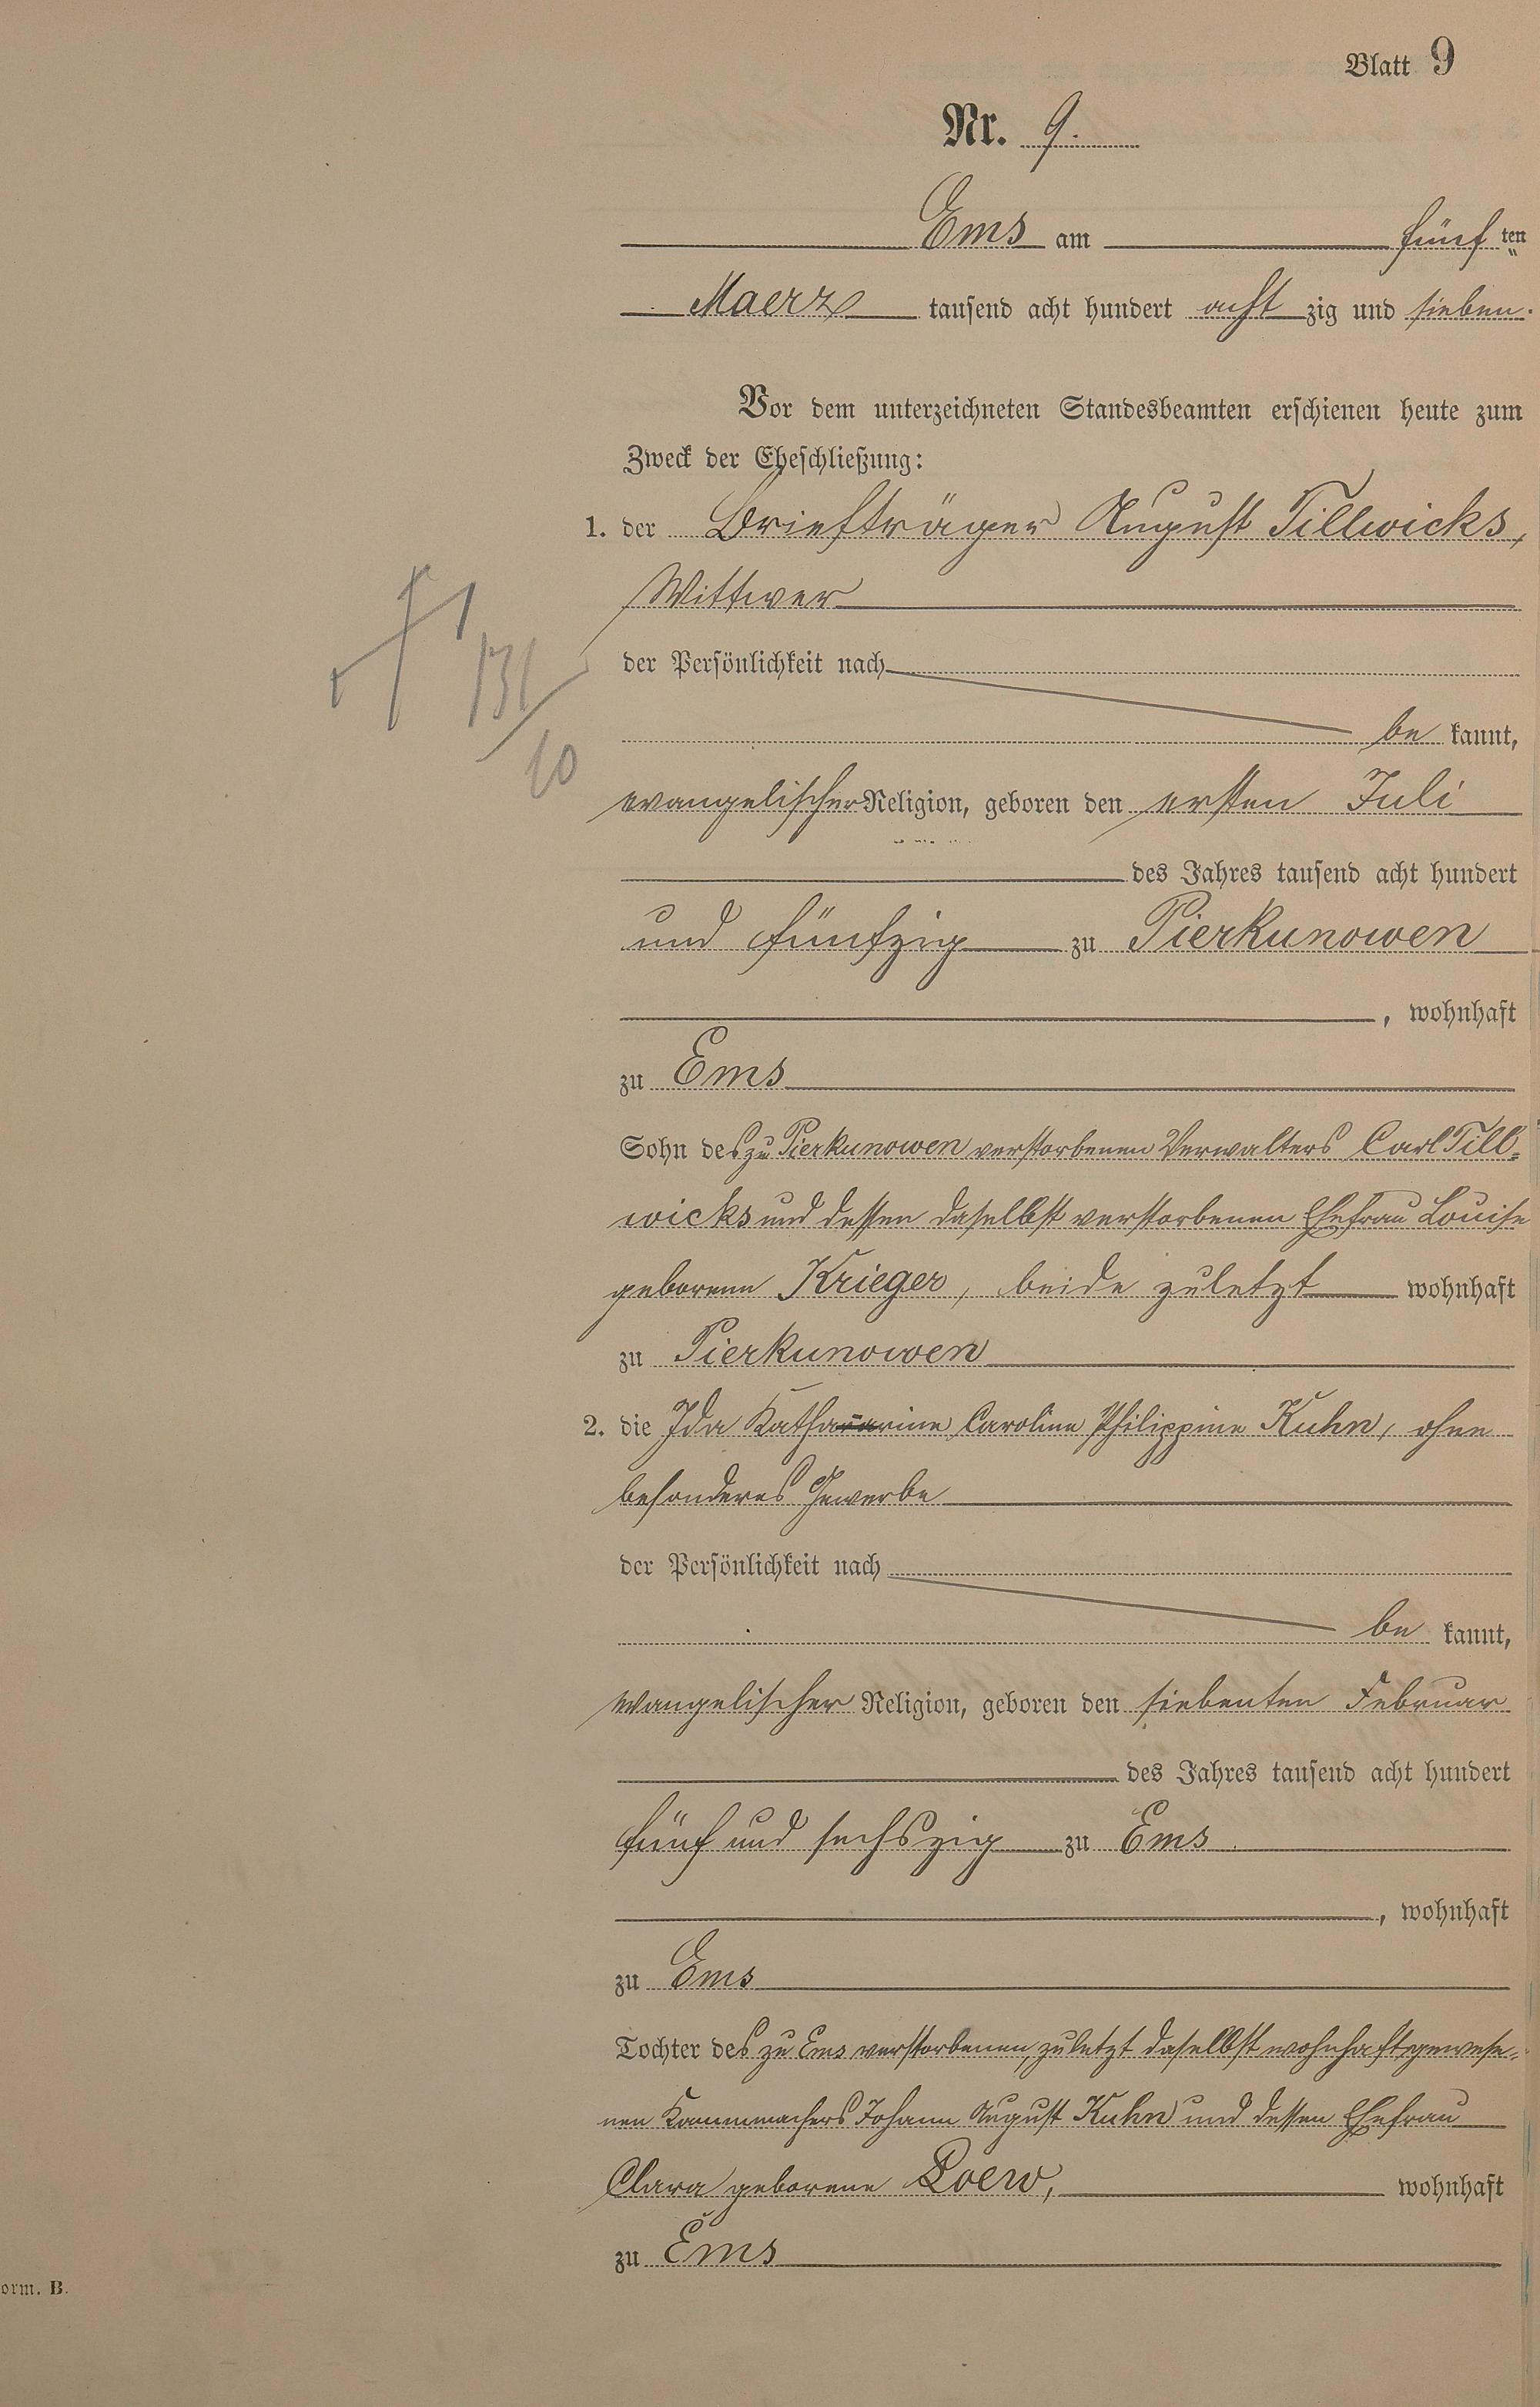 Blatt 9
Nr. 9.
Ems am fünf ten
Maerz tausend acht hundert acht zig und sieben.
Vor dem unterzeichneten Standesbeamten erschienen heute zum
Zweck der Eheschließung:
1. der Briefträger August Tillwicks,
Wittwer
der Persönlichkeit nach
be kannt,
evangelischer Religion, geboren den ersten Juli
des Jahres tausend acht hundert
und fünfzig zu Pierkunowen
, wohnhaft
zu Ems
Sohn des zu Pierkunowen verstorbenen Verwalters Carl Till-
wicks und dessen daselbst verstorbenen Ehefrau Louise
geborene Krieger, beide zuletzt wohnhaft
zu Pierkunowen
2. die Ida Katharina Caroline Philippine Kuhn, ohne
besonderes Gewerbe
der Persönlichkeit nach
be kannt,
evangelischer Religion, geboren den siebenten Februar
des Jahres tausend acht hundert
fünf und sechszig zu Ems
, wohnhaft
zu Ems
Tochter des zu Ems verstorbenen, zuletzt daselbst wohnhaft gewese-
nen Kammmachers Johann August Kuhn und dessen Ehefrau
Clara geborene Loew, wohnhaft
zu Ems
orm. B.